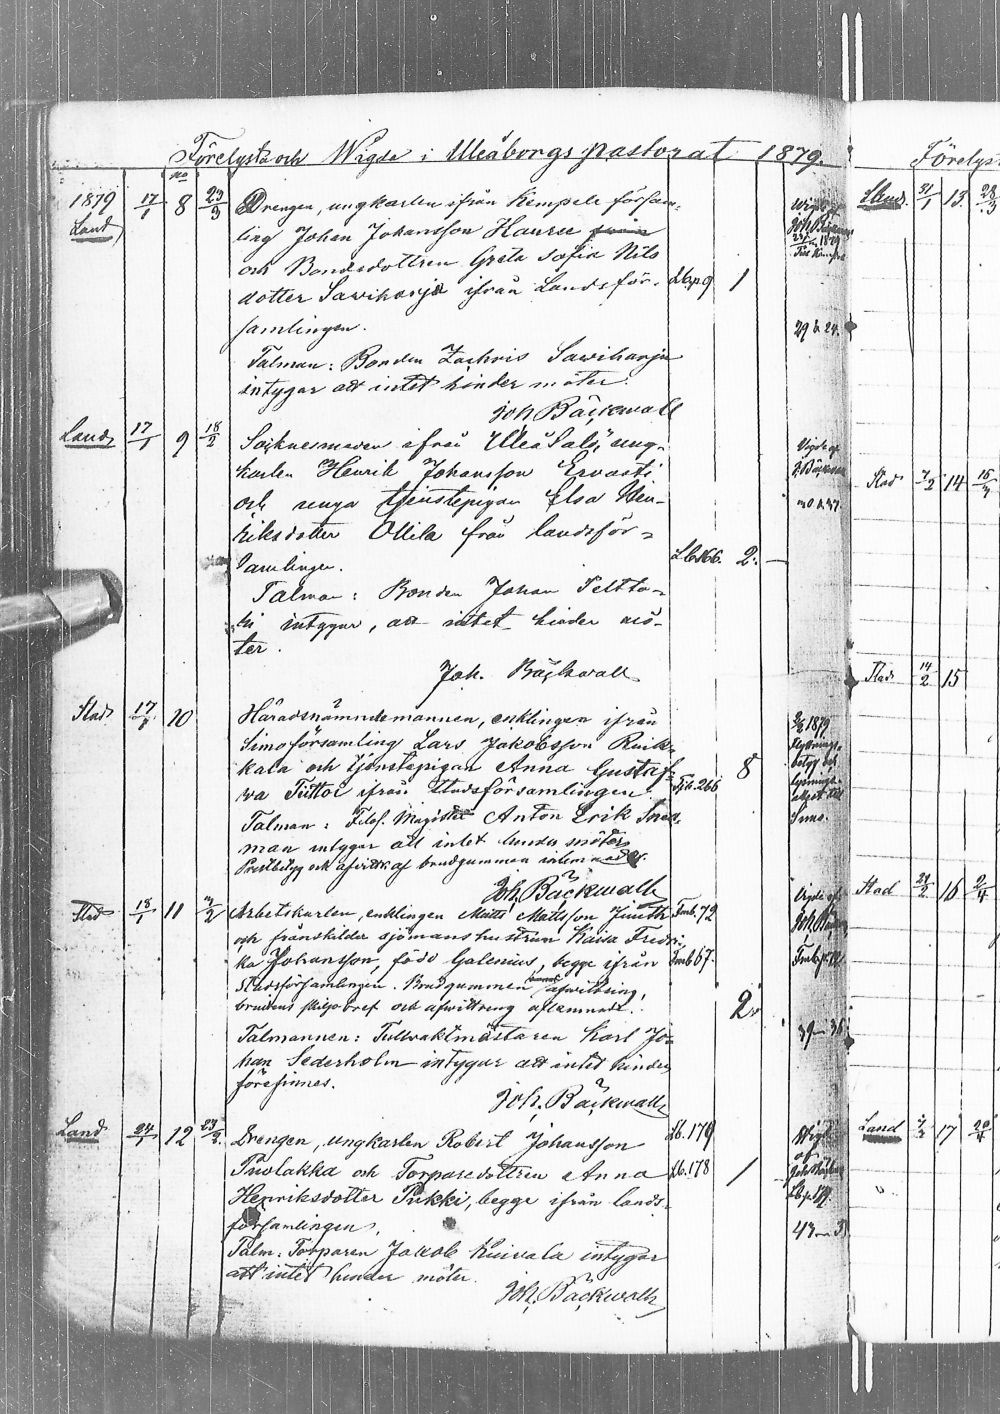 Förelysta och Wigde i Uleåborgs pastorat 1879.
No
1879 Land 17/1 8 23/3 Drengen, ungkarlen ifrån Kempele försam-
ling Johan Johansson Hannu från
och Bondedottren Greta Sofia Nils
dotter Sawiharju ifrån Landsför- Lb p 9 1
samlingen.
Talman: Bonden Zachris Sawiharju
intygar att intet hinder möter.
Joh Bäckwall
29 å 24.
Land 17/1 9 18/2 Socknesmeden ifrån Uleå Salo, ung-
karlen Henrik Johansson Ervasti
och unga tjenstepigan Elsa Hen-
riksdotter Ollila från landsför-
samlingen. Lb 166. 2.
Talman: Bonden Johan Peltto-
intygar, att intet hinder mö-
ter.
Joh. Bäckwall
Stad 17/1 10 Häradsnämndemannen, enklingen ifrån
Simo församling Lars Jakobsson Ruik-
kala och tjenstepigan Anna Gustaf-
va Tuttor ifrån stadsförsamlingen 266 8
Talman: Filos. Magister Anton Erik Snell-
man intygar att intet hinder möter
Prestbetyg och afvittr. af brudgummen inlemnades.
Joh. Bäckwall
1879
Flyttnings-
betyg och
lysnings-
attest till
Simo.
Stad 18/1 11 2/2 Arbetskarlen, enklingen Matts Mattsson Junth Fmb. 72
och frånskilda sjömanshustrun Kaisa Fredri-
ka Johansson, född Galenius, begge ifrån Fmb 67.
stadsförsamlingen. Brudgummen afwittring,
brudens skiljobref och afwittring aflemnade. 2.
Talmannen: Tullvaktmästaren Karl Jo-
han Sederholm intygar att intet hinder
förefinnes.
Joh. Bäckwall
Land 24/1 12 23/2 Drengen, ungkarlen Robert Johansson Lb. 179
Puolakka och Torparedottren Anna Lb. 178 1
Henriksdotter Pukki, begge ifrån lands-
församlingen.
Talm: Torparen Jakob Kuivala intygar
att intet hinder möter.
Joh. Bäckwall
Wigd
af
Förelyst
Land. 31/1 13 23/3
Stad 7/2 14 16/3
Stad 14/2 15
Stad 21/2 16 2/4
Land 17 20/4